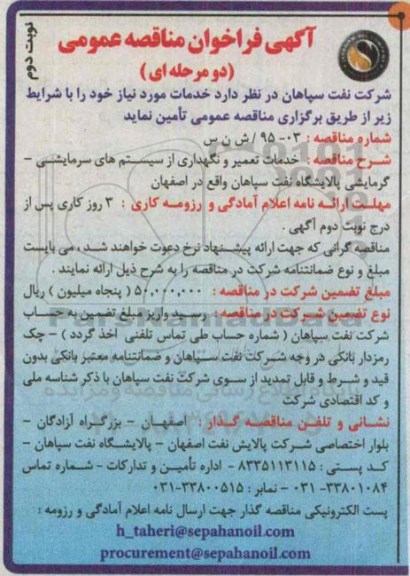 نوبت دوم
آگهی فراخوان مناقصه عمومی
(دو مرحله ای)
شرکت نفت سپاهان در نظر دارد خدمات مورد نیاز خود را با شرایط
زیر از طریق برگزاری مناقصه عمومی تأمین نماید
شماره مناقصه : ۰۳- ۹۵ / ش ن س
شرح مناقصه : خدمات تعمیر و نگهداری از سیستم های سرمایشی –
گرمایشی پالایشگاه نفت سپاهان واقع در اصفهان
مهلت ارائه نامه اعلام آمادگی و رزومه کاری : ۳ روز کاری پس از
درج نوبت دوم آگهی .
مناقصه گرانی که جهت ارائه پیشنهاد نرخ دعوت خواهند شد ، می بایست
مبلغ و نوع ضمانتنامه شرکت در مناقصه را به شرح ذیل ارائه نمایند .
مبلغ تضمین شرکت در مناقصه : ۵۰,۰۰۰,۰۰۰ ( پنجاه میلیون ) ریال
نوع تضمین شرکت در مناقصه : رسید واریز مبلغ تضمین به حساب
شرکت نفت سپاهان ( شماره حساب طی تماس تلفنی اخذ گردد ) – چک
رمزدار بانکی در وجه شرکت نفت سپاهان و ضمانتنامه معتبر بانکی بدون
قید و شرط و قابل تمدید از سوی شرکت نفت سپاهان با ذکر شناسه ملی
و کد اقتصادی شرکت
نشانی و تلفن مناقصه گذار : اصفهان – بزرگراه آزادگان –
بلوار اختصاصی شرکت پالایش نفت اصفهان – پالایشگاه نفت سپاهان –
کد پستی : ۸۳۳۵۱۱۳۱۱۵ - اداره تأمین و تدارکات – شماره تماس
۳۳۸۰۱۰۸۴- ۰۳۱ – نمابر : ۳۳۸۰۰۵۱۵-۰۳۱
پست الکترونیکی مناقصه گذار جهت ارسال نامه اعلام آمادگی و رزومه :
h_taheri@sepahanoil.com
procurement@sepahanoil.com